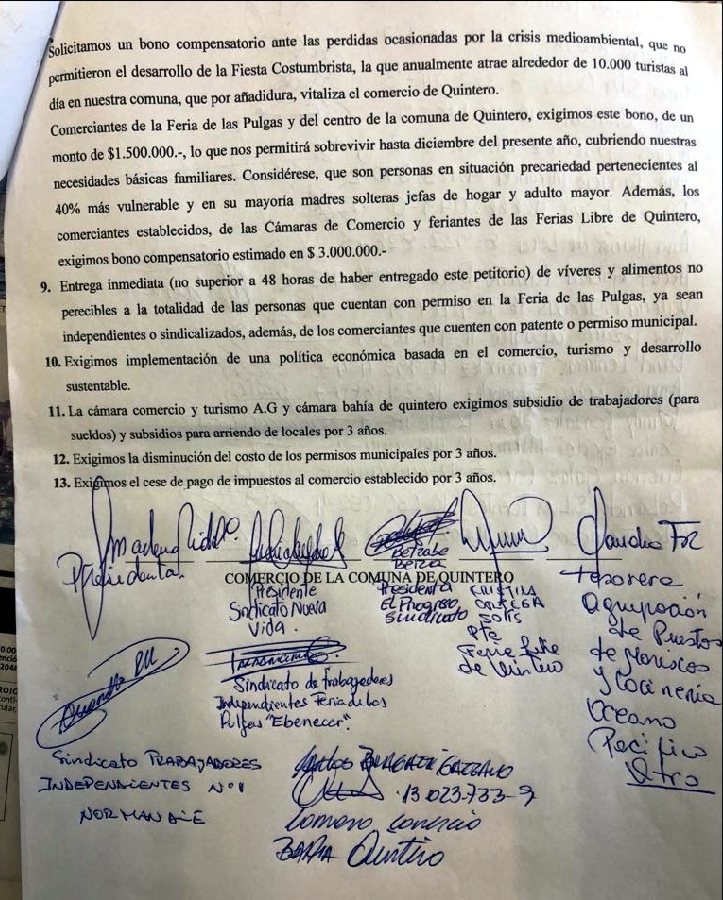 Solicitamos un bono compensatorio ante las perdidas ocasionadas por la crisis medioambiental, que no
permitieron el desarrollo de la Fiesta Costumbrista, la que anualmente atrae alrededor de 10.000 turistas al
día en nuestra comuna, que por añadidura, vitaliza el comercio de Quintero.
Comerciantes de la Feria de las Pulgas y del centro de la comuna de Quintero, exigimos este bono, de un
monto de $1.500.000.-, lo que nos permitirá sobrevivir hasta diciembre del presente año, cubriendo nuestras
necesidades básicas familiares. Considérese, que son personas en situación precariedad pertenecientes al
40% más vulnerable y en su mayoría madres solteras jefas de hogar y adulto mayor. Además, los
comerciantes establecidos, de las Cámaras de Comercio y feriantes de las Ferias Libre de Quintero,
exigimos bono compensatorio estimado en $ 3.000.000.-
9. Entrega inmediata (no superior a 48 horas de haber entregado este petitorio) de víveres y alimentos no
perecibles a la totalidad de las personas que cuentan con permiso en la Feria de las Pulgas, ya sean
independientes o sindicalizados, además, de los comerciantes que cuenten con patente o permiso municipal.
10. Exigimos implementación de una política económica basada en el comercio, turismo y desarrollo
sustentable.
11. La cámara comercio y turismo A.G y cámara bahía de quintero exigimos subsidio de trabajadores (para
sueldos) y subsidios para arriendo de locales por 3 años.
12. Exigimos la disminución del costo de los permisos municipales por 3 años.
13. Exigimos el cese de pago de impuestos al comercio establecido por 3 años.
Presidenta.
COMERCIO DE LA COMUNA DE QUINTERO
Presidente
Sindicato Nueva
Vida.
Presidenta
El Progreso
Sindicato
CRISTINA
ORTEGA
SOTO
Pte
Feria Libre
de Quintero
Claudio
Tesorero
Agrupación
de Puestos
de Mariscos
y Cocinería
Oceano
Pacifico
Qtro
Sindicato de trabajadores
Independientes Feria de las
Pulgas "Ebenecer".
Sindicato TRABAJADORES
INDEPENDIENTES N°1
NORMANDIE
13.023.733-9
Camara Comercio
BAHIA Quintero